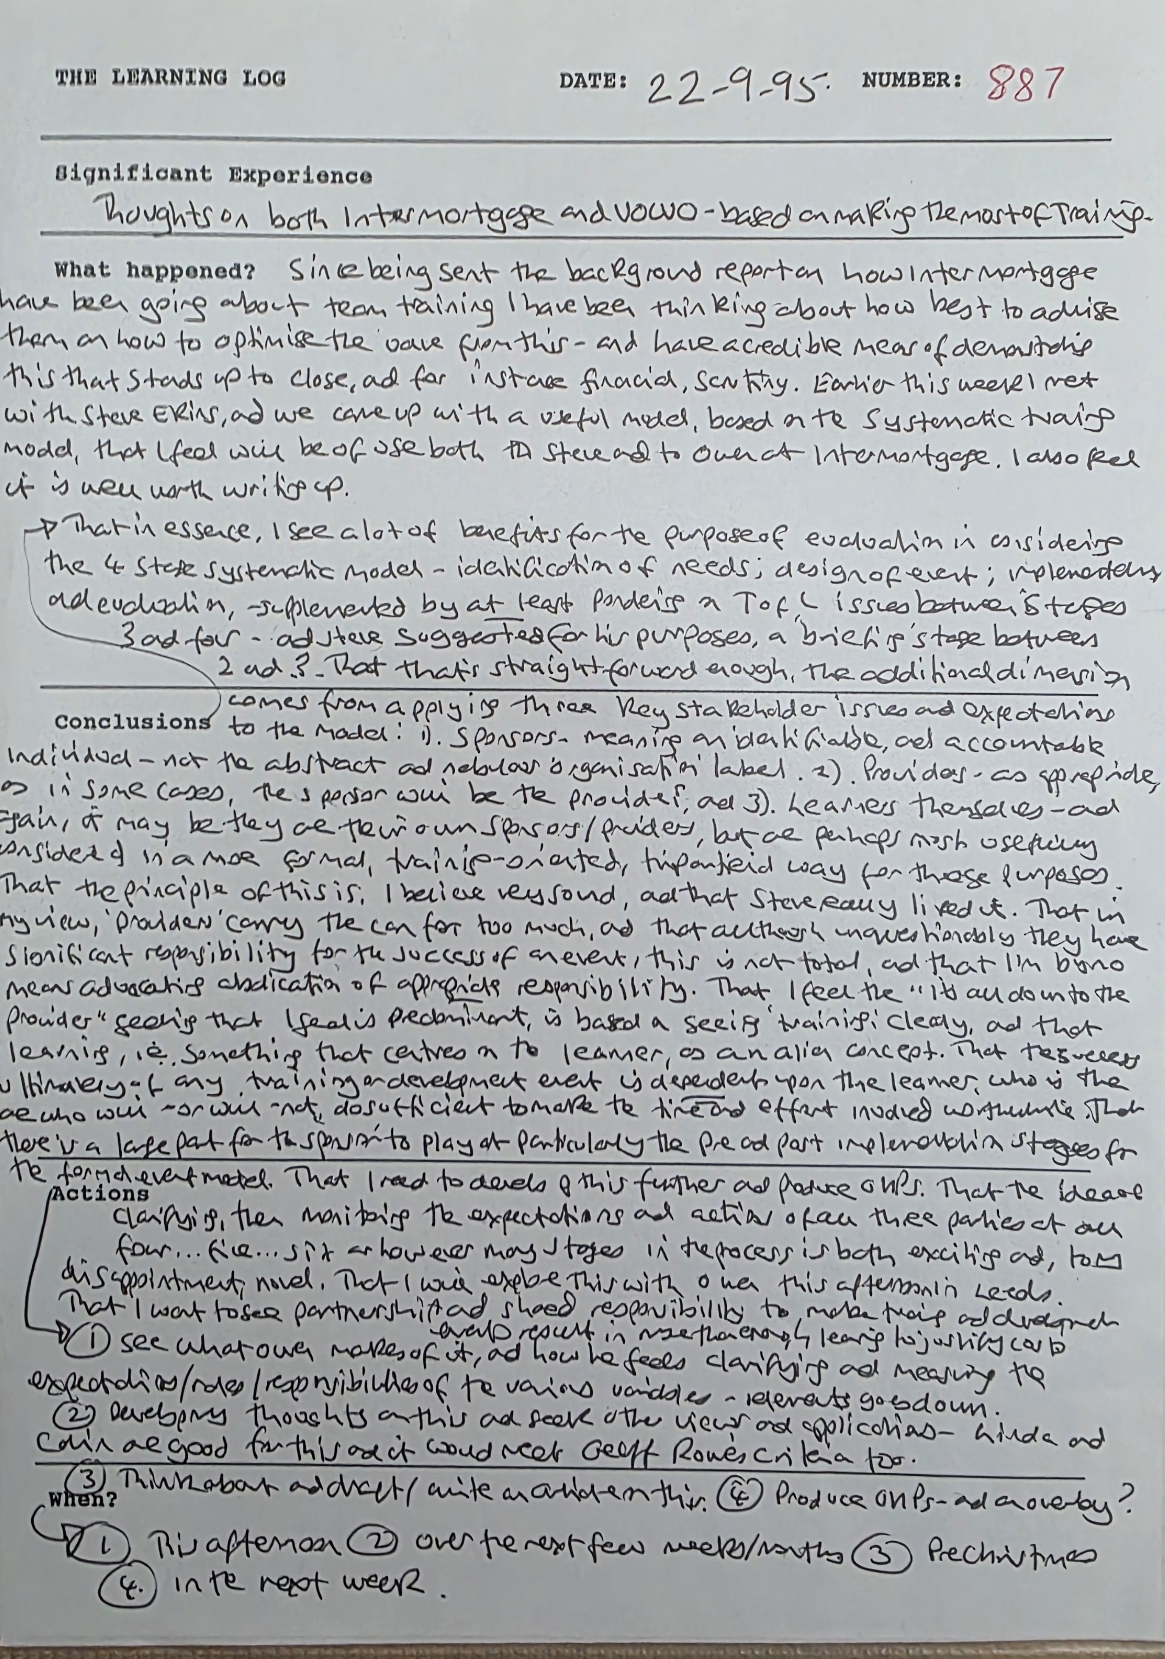 THE LEARNING LOG DATE: 22-9-95. NUMBER: 887
Significant Experience
Thoughts on both Intermortgage and VOWO - based on making the most of Training.
What happened? Since being sent the background report on how Intermortgage
have been going about team training I have been thinking about how best to advise
them on how to optimise the from this - and have a credible means of demonstrating
this that stands up to close, and for instance financial, scrutiny. Earlier this week I met
with Steve Ekins, and we came up with a useful model, based on the systematic training
model, that I feel will be of use both to Steve and to Owen at Intermortgage. I also feel
it is well worth writing up.
→ That in essence, I see a lot of benefits for the purpose of evaluation in considering
the 4 stage systematic model - identification of needs; design of event; implementation
and evaluation, - supplemented by at least pondering on T of L issues between stages
3 and four - and Steve suggested for his purposes, a 'briefing' stage between
2 and 3. That that's straightforward enough, the additional dimension
comes from applying three key stakeholder issues and expectations
Conclusions to the model: 1). Sponsors - meaning an identifiable, and accountable
individual - not the abstract and nebulous 'organisation' label. 2). Providers - as appropriate,
as in some cases, the sponsor will be the provider, and 3). Learners themselves - and
again, it may be they are their own sponsors/providers, but are perhaps most usefully
considered in a more formal, training-oriented, way for these purposes.
That the principle of this is, I believe very sound, and that Steve really liked it. That in
my view, 'providers' carry the can for too much, and that although unquestionably they have
significant responsibility for the success of an event, this is not total, and that I'm by no
means advocating abdication of appropriate responsibility. That I feel the "its all down to the
provider" that I feel is predominant, is based on seeing 'training,' clearly, and that
learning, i.e. something that centres on the learner, as an alien concept. That the success
ultimately of any training or development event is dependent upon the learner, who is the
one who will - or will - not, do sufficient to make the time and effort involved worthwhile. That
there is a large part for the sponsor to play at particularly the pre and post implementation stages for
the formal event model. That I need to develop this further and produce OHPs. That the idea of
Actions
clarifying, then monitoring the expectations and actions of all three parties at all
four... five... six or however many stages in the process is both exciting and, to my
disappointment, novel. That I will explore this with Owen this afternoon in Leeds.
That I want to see partnership and shared responsibility to make training and development
events result in more than enough learning to justify costs
① See what Owen makes of it, and how he feels clarifying and measuring the
expectations/roles/responsibilities of the various variables - goes down.
② Develop my thoughts on this and seek other views and applications - Linda and
Colin are good for this and it would meet Geoff Rowe's criteria too.
③ Think about and draft/write an article on this. ④ Produce OHPs - and an overlay?
When?
① This afternoon ② over the next few weeks/months ③ Pre christmas
④ in the next week.